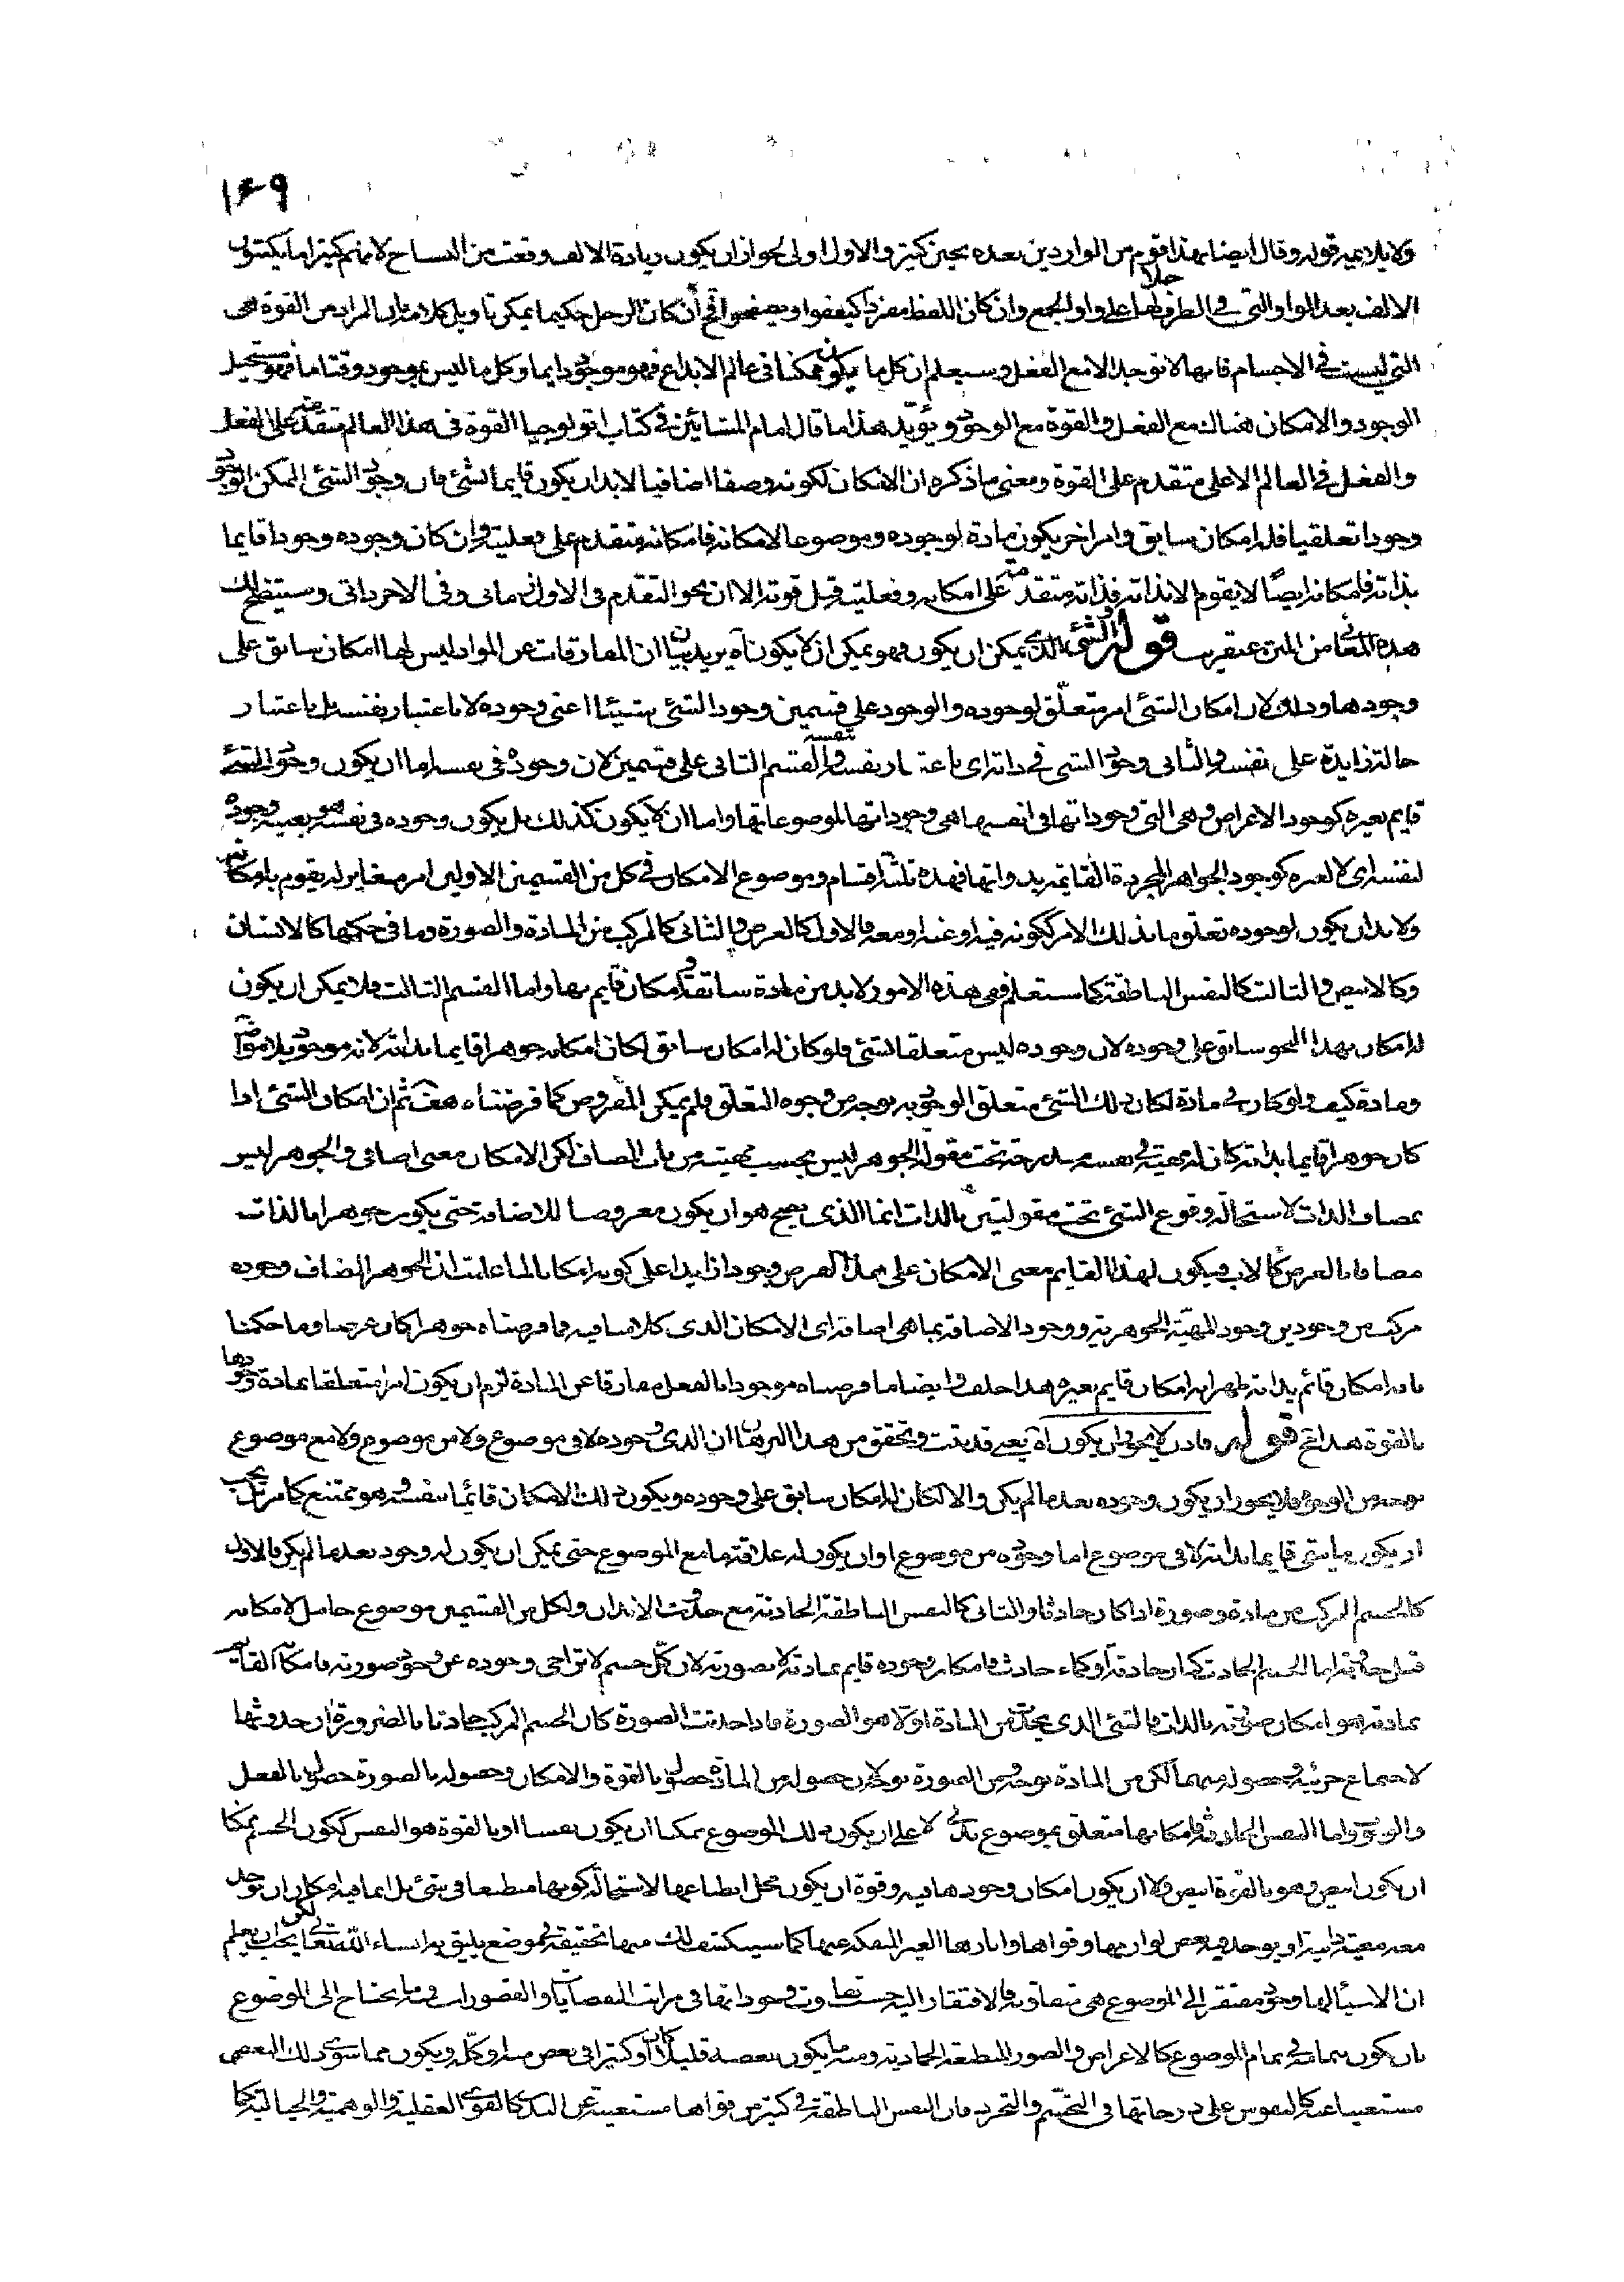 ١٦٩
ولا يلايمه قوله وقال ايضا بهذا قوم من الواردين بعده بحين كثير والاول اولى لجواز ان يكون زيادة الالف وقعت من النساخ لانهم كثيرا ما يكتبون
الالف بعد الواو التي في الطرف حملا لها على واو الجمع وان كان اللفظ مفردا كيغفوا ويصفحوا ثم ان كان الرجل حكيما يمكن تاويل كلامه بان المراد من القوة هي
التي ليست في الاجسام فانها لا توجد الا مع الفعل وسيعلم ان كل ما يكون ممكنا في عالم الابداع فهو موجود دايما وكل ما ليس بموجود وقتا ما فهو مستحيل
الوجود والامكان هناك مع الفعل والقوة مع الوجود ويؤيد هذا ما قال امام المشائين في كتاب اثولوجيا القوة في هذا العالم متقدمة على الفعل
والفعل في العالم الاعلى متقدم على القوة ومعنى ما ذكره ان الامكان لكونه وصفا اضافيا لابد ان يكون قايما بشئ فان وجود الشئ الممكن الوجود
وجودا تعلقيا فله امكان سابق وامر اخر يكون مادة لوجوده وموضوعا لامكانه فامكانه متقدم على فعليته وان كان وجوده وجودا قايما
بذاته فامكانه ايضا لا يقوم الا بذاته فذاته متقدمة على امكانه وفعليته قبل قوته الا ان نحو التقدم في الاول زماني وفي الاخر ذاتي وستيضح لك
هذه المعاني من المتن عنقريب قوله الشئ الذي يمكن ان يكون فهو يمكن ان لا يكون آه يريد بيان ان المفارقات عن المواد ليس لها امكان سابق على
وجودها وذلك لان امكان الشئ امر متعلق لوجوده والوجود على قسمين وجود الشئ بشيئا اعني وجوده لا باعتبار نفسه بل باعتبار
حالة زايدة على نفسه والثاني وجود الشئ في ذاته اي باعتبار نفسه نفسه والقسم الثاني على قسمين لان وجوده في نفسه اما ان يكون وجود الشئ
قايم بغيره كوجود الاعراض وهي التي وجوداتها في انفسها هي وجوداتها لموضوعاتها واما ان لا يكون كذلك بل يكون وجوده في نفسه هو بعينه وجوده
لنفسه اي لا لغيره كوجود الجواهر المجردة القايمة بذواتها فهذه ثلثة اقسام وموضوع الامكان في كل من القسمين الاولين امر مغاير له يقوم بامكانه
ولابد ان يكون لوجوده تعلق ما بذلك الامر ككونه فيه او عنه او معه فالاول كالعرض والثاني كالمركب من المادة والصورة وما في حكمها كالانسان
وكالابيض والثالث كالنفس الناطقة كما ستعلم فهي هذه الامور لابد من مادة سابقة وامكان قايم بها واما القسم الثالث فلا يمكن ان يكون
له امكان بهذا النحو سابق على وجوده لان وجوده ليس متعلقا بشئ فلو كان له امكان سابق لكان امكانه جوهرا قايما بذاته لانه موجود بلا موضوع
ومادة كيف ولو كان في مادة لكان ذلك الشئ متعلق الوجود به بوجه من وجوه التعلق فلم يكن المفروض كما فرضناه هف ثم ان امكان الشئ اذا
كان جوهرا قايما بذاته كان له مهية في نفسه مندرجة تحت مقولة الجوهر ليس بحسب مهيته من باب المضاف لكن الامكان معنى اضافي والجوهر ليس
بمضاف الذات لاستحالة وقوع الشئ تحت مقولتين بالذات انما الذي يصح هو ان يكون معروضا للاضافة حتى يكون جوهرا بالذات
مضافا بالعرض كالاب فيكون لهذا القايم معنى الامكان على هذا الفرض وجودا زايدا على كونه امكانا لما علمت ان الجوهر المضاف وجوده
مركب من وجودين وجود المهية الجوهرية ووجود الاضافة بما هي اضافة اي الامكان الذي كلامنا فيه فما فرضناه جوهرا كان عرضا وما حكمنا
بانه امكان قائم بذاته ظهر انه امكان قايم بغيره هذا خلف وايضا ما فرضناه موجودا بالفعل مفارقا عن المادة لزم ان يكون امرا متعلقا بمادة وجودها
بالقوة هذا مح قوله فاذن لا يجوز ان يكون آه يعني قد ثبت وتحقق من هذا البرهان ان الذي وجوده لا في موضوع ولا من موضوع ولا مع موضوع
بوجه من الوجوه فلا يجوز ان يكون وجوده بعد ما لم يكن والا لكان له امكان سابق على وجوده ويكون ذلك الامكان قائما بنفسه وهو ممتنع كما مر بل يجب
ان يكون ما شئ قايما بذاته لا في موضوع اما وجوده من موضوع او ان يكون له علاقة ما مع الموضوع حتى يمكن ان يكون له وجود بعد ما لم يكن فالاول
كالجسم المركب من مادة وصورة اذا كان حادثا والثاني كالنفس الناطقة الحادثة مع حدوث الابدان ولكل من القسمين موضوع حامل لامكانه
قبل حدوثه اما الجسم الحادث كنار حادثة او كماء حادث فامكان وجوده قايم بمادته لا بصورته لان كل جسم لا تراخي وجوده عن وجود صورته فامكانه القايم
بمادته هو امكان صورته بالذات فالشئ الذي يحدث من المادة اولا هو الصورة فاذا حدثت الصورة كان الجسم المركب حادثا بالضرورة ان حدوثها
لاجتماع جزئيه وحصوله منهما لكن من المادة بوجه ومن الصورة بوجه لان حصوله من المادة حصول بالقوة والامكان وحصوله بالصورة حصول بالفعل
والوجود واما النفس الحادثة فامكانها متعلق بموضوع بدني لا على ان يكون ذلك الموضوع ممكنا ان يكون نفسا او بالقوة هو النفس ككون الجسم ممكنا
ان يكون ابيض وهو بالقوة ابيض ولا ان يكون امكان وجودها فيه وقوة ان يكون محل انطباعها لاستحالة كونها منطبعا في شئ بل انما فيه امكان ان توجد
معه معية ذاتية او يوجد فيه بعض لوازمها وقواها واثارها الغير المنفكة عنها كما سينكشف لك منها تحقيقه في موضع يليق به انشاء الله تعالى لكن يجب ان يعلم
ان الاشياء لها وجود مفتقر الى الموضوع هي متفاوتة والافتقار اليه حسب تفاوت وجوداتها في مراتب النقصانات والقصورات فمنه ما يحتاج الى الموضوع
بان يكون بتمامه في تمام الموضوع كالاعراض والصور المنطبعة الجمادية ومنه ما يكون بعضه قليلا كان او كثيرا في بعض منه او كله ويكون مما سوى ذلك البعض
مستغنيا عنه كالنفوس على درجاتها في التجسم والتجرد فان النفس الناطقة في كثير من قواها مستغنية عن البدن كالقوى العقلية والوهمية والخيالية كما